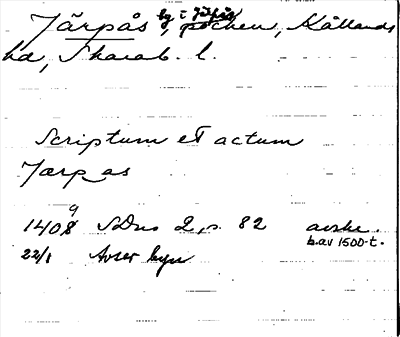 Järpås, by i Järpås socken, Kållands
hd, Skarab. l.
Scriptum et actum
Jærpas
1409 SDns 2, s. 82 avskr.
b. av 1500-t.
22/1 Avser byn